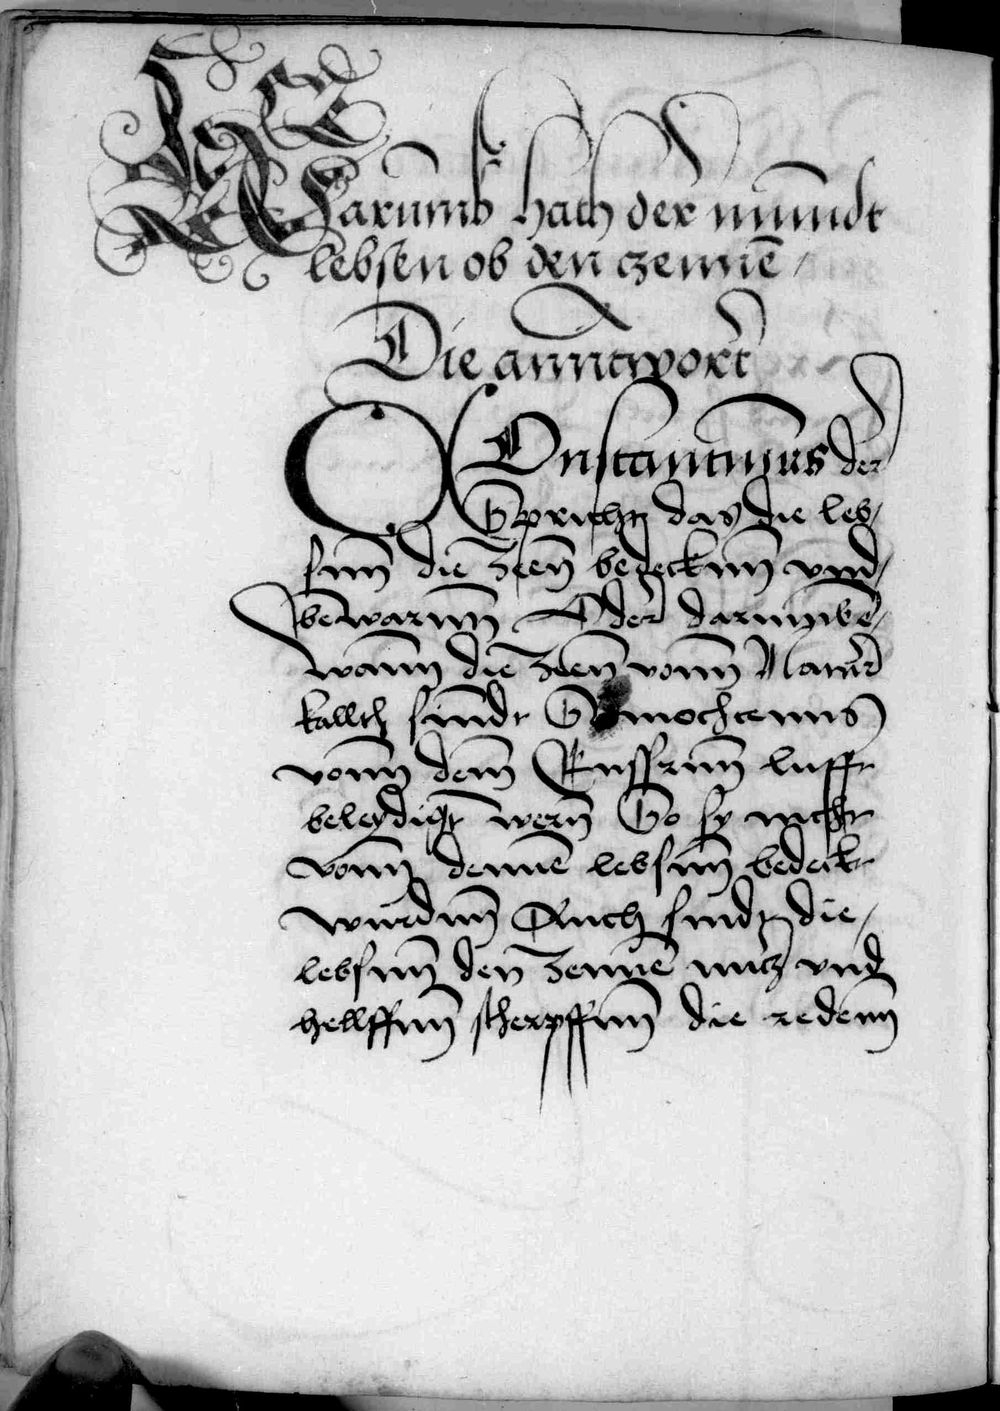 Warumb hath der mundt
lebsen ob den czennē /
Die anntwort
COnstantinus der
Spricht das die leb/
sinn die Zeen bedeckinn vnd/
bewarinn Oder darumbē/
wann die Zeen vonn Natur
kallth sindt So mochtenns
vonn dem Eussrinn lufft
beleydigt wern So sy nicht
vonn dennē lebsinn bedeckt
wurdinn Auch sindt die/
lebsinn den Zennē nutz vnd
hellffinn scherpffinn die redenn